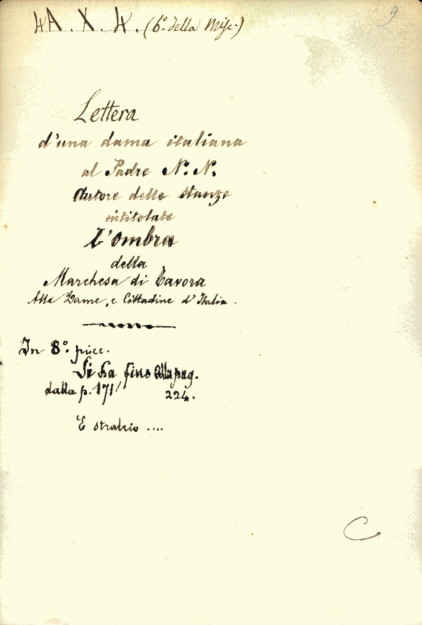 4A. X. 4. (6º. della Misc.)
9
Lettera
d'una dama italiana
al Padre N. N.
Autore delle stanze
intitolate
L'ombra
della
Marchesa di Tavora
Alle Dame, e Cittadine d'Italia.
In 8º. picc.
Si ha fino alla pag.
dalla p. 171 224.
E stralcio ....
C